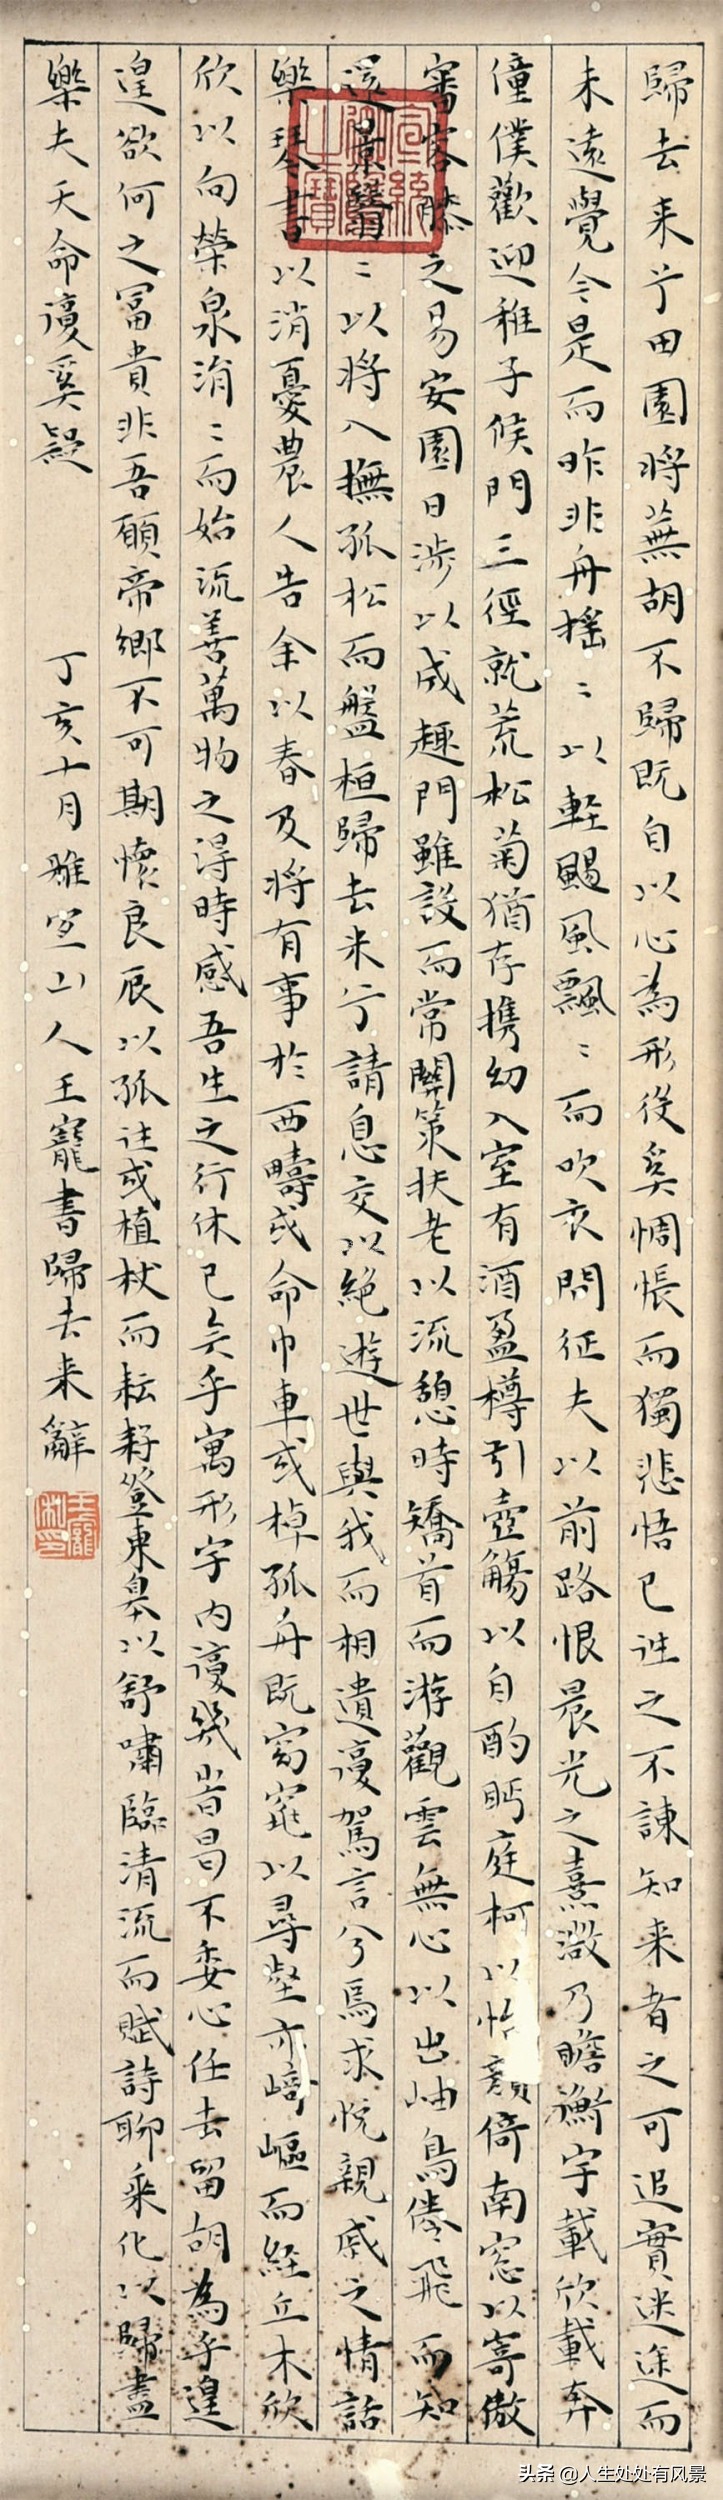 歸去来兮田園將蕪胡不歸既自以心為形役奚惆悵而獨悲悟已往之不諫知来者之可追實迷途而
未遠覺今是而昨非舟摇〻以輕颺風飄〻而吹衣問征夫以前路恨晨光之熹微乃瞻衡宇載欣載奔
僮僕歡迎稚子候門三徑就荒松菊猶存携幼入室有酒盈樽引壺觴以自酌眄庭柯以怡顏倚南窓以寄傲
審容膝之易安園日涉以成趣門雖設而常關策扶老以流憩時矯首而游觀雲無心以出岫鳥倦飛而知
還景翳〻以將入撫孤松而盤桓歸去来兮請息交以絶遊世與我而相遺復駕言兮焉求悦親戚之情話
樂琴書以消憂農人告余以春及將有事於西疇或命巾車或棹孤舟既窈窕以尋壑亦崎嶇而經丘木欣
欣以向榮泉涓〻而始流善萬物之得時感吾生之行休已矣乎寓形宇内復幾旹曷不委心任去留胡為乎遑
遑欲何之冨貴非吾願帝鄉不可期懷良辰以孤往或植杖而耘耔登東皋以舒嘯臨清流而賦詩聊乘化以歸盡
樂夫天命復奚疑 丁亥十月雅宜山人王寵書歸去来辭
王寵私印
头条 @人生处处有风景